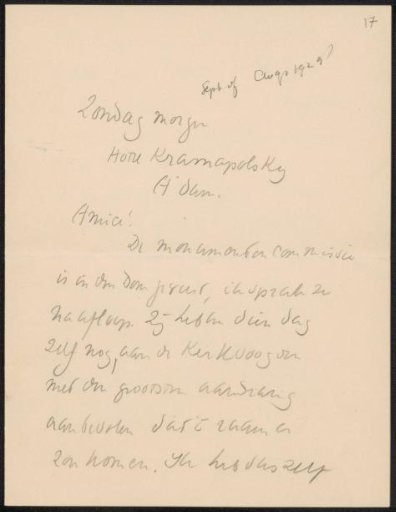 17
Sept of Augs 1929?
Zondag morgen
Hotel Krasnapolsky
A'dam.
Amice!
De monumenten commissie
is in den Dom geweest, ik sprak ze
na afloop. Zij hebben dien dag
zelf nog, aan de Kerkvoogden
met den grootsten aandrang
aanbevolen dat er ramen
zou komen. Ik heb dus zelf